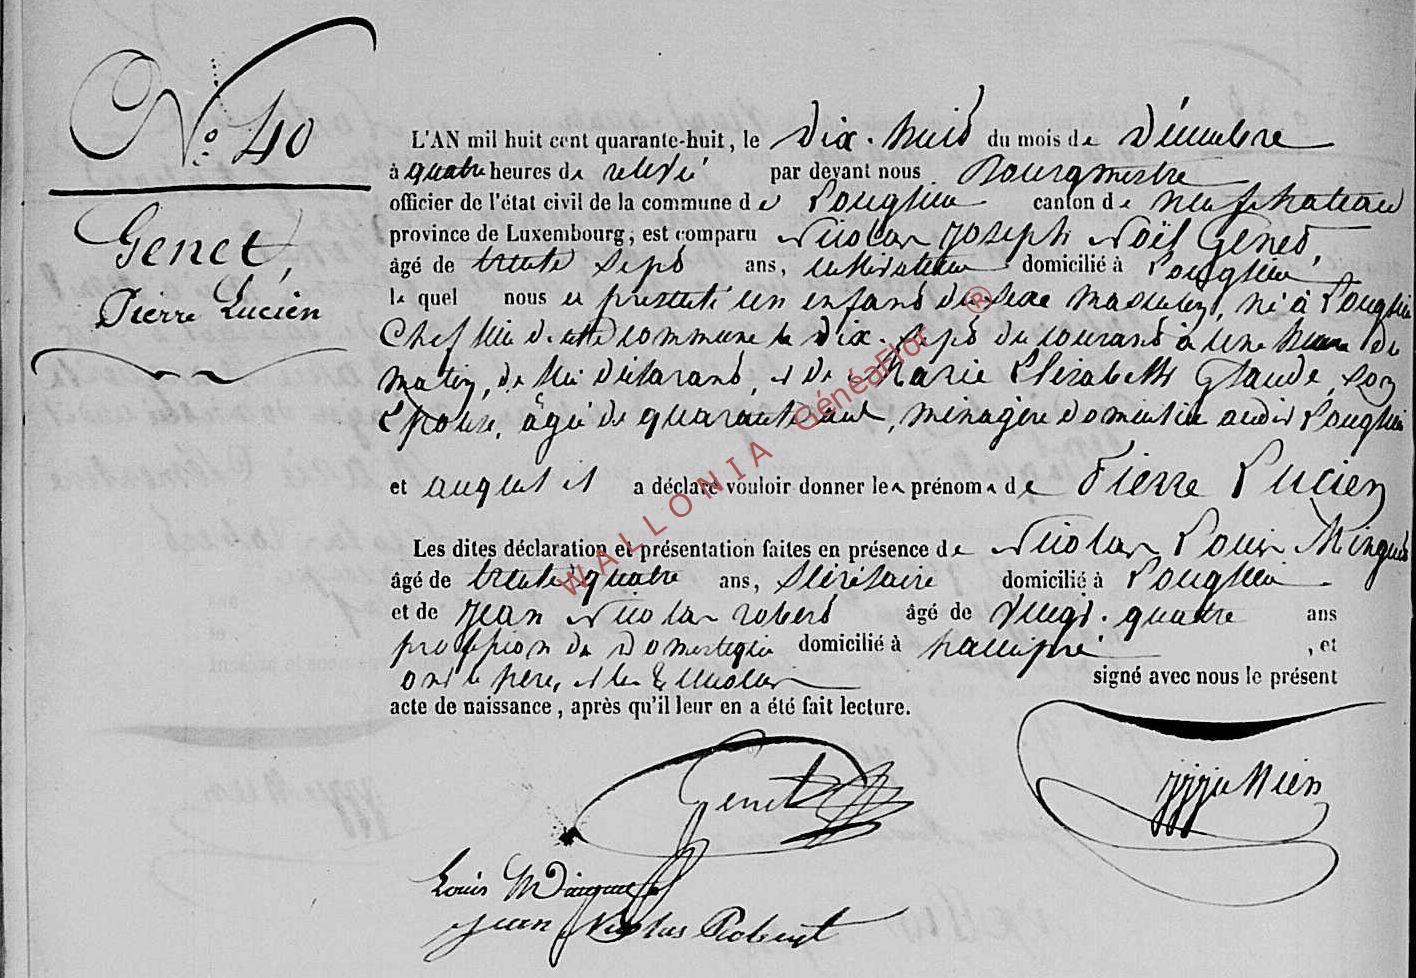 No 40
Genet,
Pierre Lucien
L'AN mil huit cent quarante-huit, le Dix-huit du mois de Décembre
à quatre heures de relevé par devant nous Bourgmestre
officier de l'état civil de la commune de Longlier canton de neufchateau
province de Luxembourg, est comparu Nicolas Joseph Noël Genet,
âgé de trente sept ans, cultivateur domicilié à Longlier
le quel nous a présenté un enfant du sexe masculin, né à Longlier
Chef lieu de cette commune le dix-sept du courant à une heure du
matin, de lui déclarant, et de Marie Elisabeth Glaude, son
Epouse, âgée de quarante ans, ménagère domiciliée audit Longlier
et auquel il a déclaré vouloir donner les prénoms de Pierre Lucien
Les dites déclaration et présentation faites en présence de Nicolas Louis Minguet
âgé de trente quatre ans, Secrétaire domicilié à Longlier
et de Jean Nicolas robert âgé de vingt-quatre ans
profession de Domestique domicilié à , et
ont le père, et les témoins signé avec nous le présent
acte de naissance, après qu'il leur en a été fait lecture.
Genet
Louis Minguet
Jean Nicolas Robert
WALLONIA GénéaFlor ®